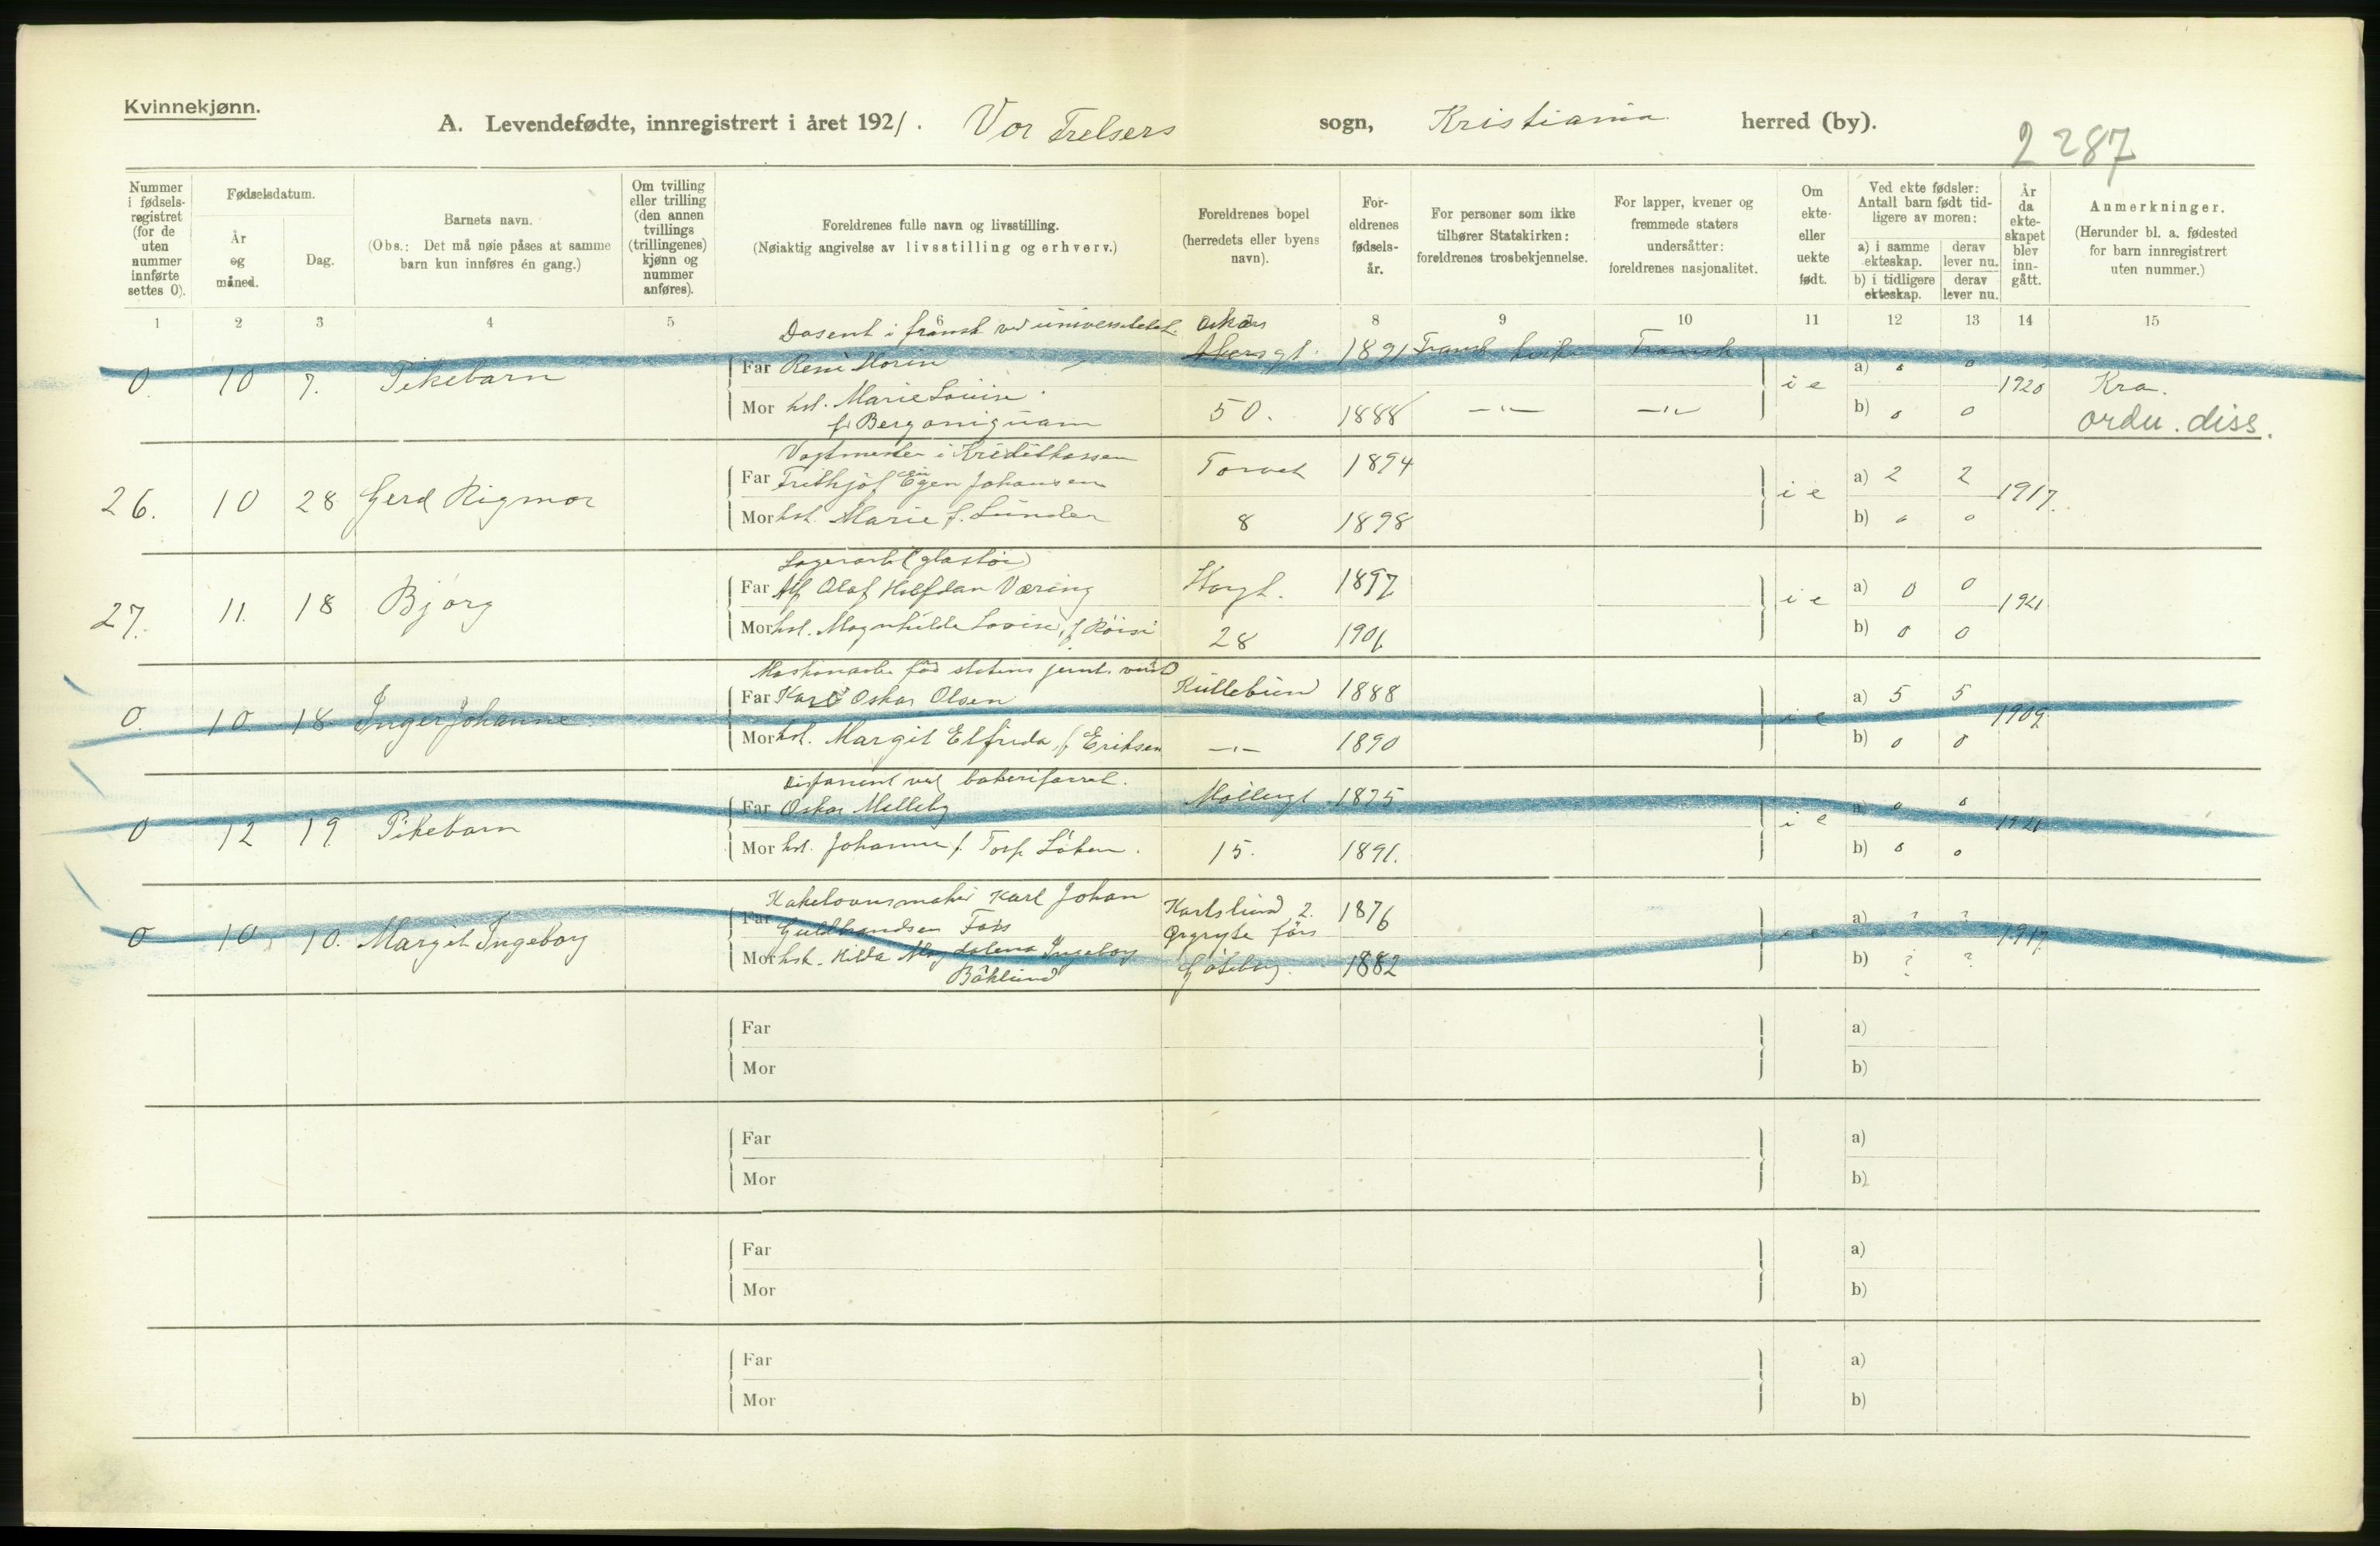 Kvinnekjønn.
A. Levendefødte, innregistrert i året 1921. Vor Frelsers sogn, Kristiania herred (by).
2287
Nummer i fødsels-registret (for de uten nummer innførte settes 0).
Fødselsdatum.
År og måned.
Dag.
Barnets navn.
(Obs.: Det må nøie påses at samme barn kun innføres én gang.)
Om tvilling eller trilling (den annen tvillings (trillingenes) kjønn og nummer anføres).
Foreldrenes fulle navn og livsstilling.
(Nøiaktig angivelse av livsstilling og erhverv.)
Foreldrenes bopel (herredets eller byens navn).
For-eldrenes fødsels-år.
For personer som ikke tilhører Statskirken: foreldrenes trosbekjennelse.
For lapper, kvener og fremmede staters undersåtter: foreldrenes nasjonalitet.
Om ekte- eller uekte født.
Ved ekte fødsler: Antall barn født tid-ligere av moren:
a) i samme ekteskap.
derav lever nu.
b) i tidligere ekteskap.
derav lever nu.
År da ekte-skapet blev inn-gått.
Anmerkninger.
(Herunder bl. a. fødested for barn innregistrert uten nummer.)
1 2 3 4 5 6 8 9 10 11 12 13 14 15
Dosent i fransk ved universitetet.
0. 10 7. Pikebarn Far René Morin Akersgt. 1891 Fransk Fransk i e a) 0 0 1920 Kra.
Mor hst. Marie Louise 50. 1888 —"— —"— b) 0 0 ordu. diss.
Vagtmester i Kreditkassen
26. 10 28 Gerd Rigmor Far Frithjof Egen Johansen Torvet 1894 i e a) 2 2 1917.
Mor hst. Marie f. Lunder 8 1898 b) 0 0
27. 11. 18 Bjørg Far Alf Olaf Halfdan Væring 1897 i e a) 0 0 1921
Mor hst. Magnhilde Lovise, f. 28 1901 b) 0 0
0. 10. 18 Inger Johanne. Far Karl Oskar Olsen Kullebund 1888 i e a) 5 5 1909
Mor hst. Margit Elfrida, f. Eriksen —"— 1890 b) 0 0
0 12 19 Pikebarn Far Oskar Melleby Møllergt. 1875 i e a) 0 0 1921
Mor hst. Johanne f. Torp Løken. 15. 1891. b) 0 0
Kakelovnsmaker Karl Johan
0 10 10. Margit Ingeborg Far Guldbrandsen Foss Karlslund 2. 1876 i e a) ? ? 1917
Örgryte förs
Mor hst. Hilda Magdalena Ingeborg Göteborg. 1882 b) ? ?
Bäklund
Far a)
Mor b)
Far a)
Mor b)
Far a)
Mor b)
Far a)
Mor b)